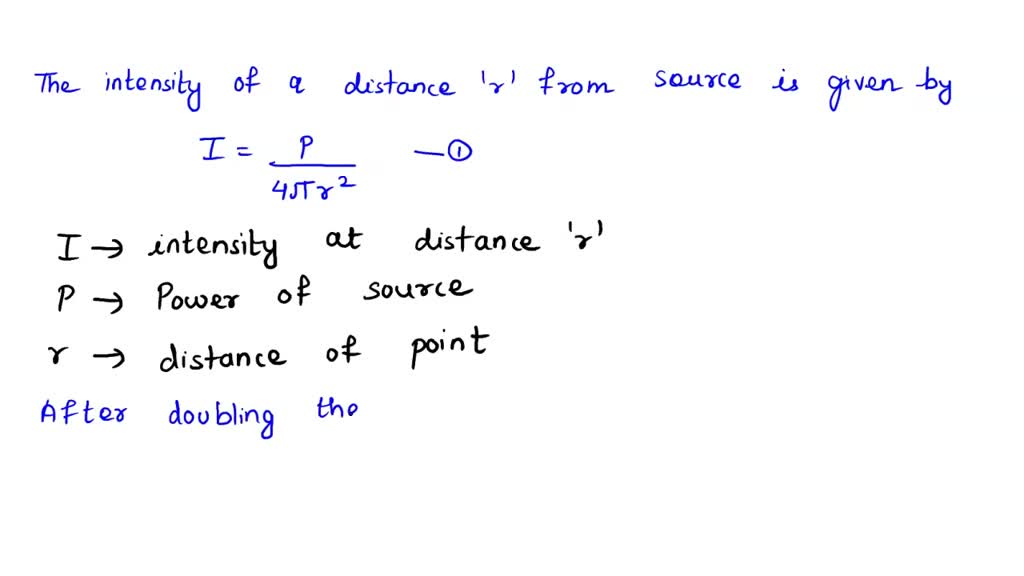 The intensity of a distance 'r' from source is given by
I = P / 4πr² —①
I → intensity at distance 'r'
P → Power of source
r → distance of point
After doubling the